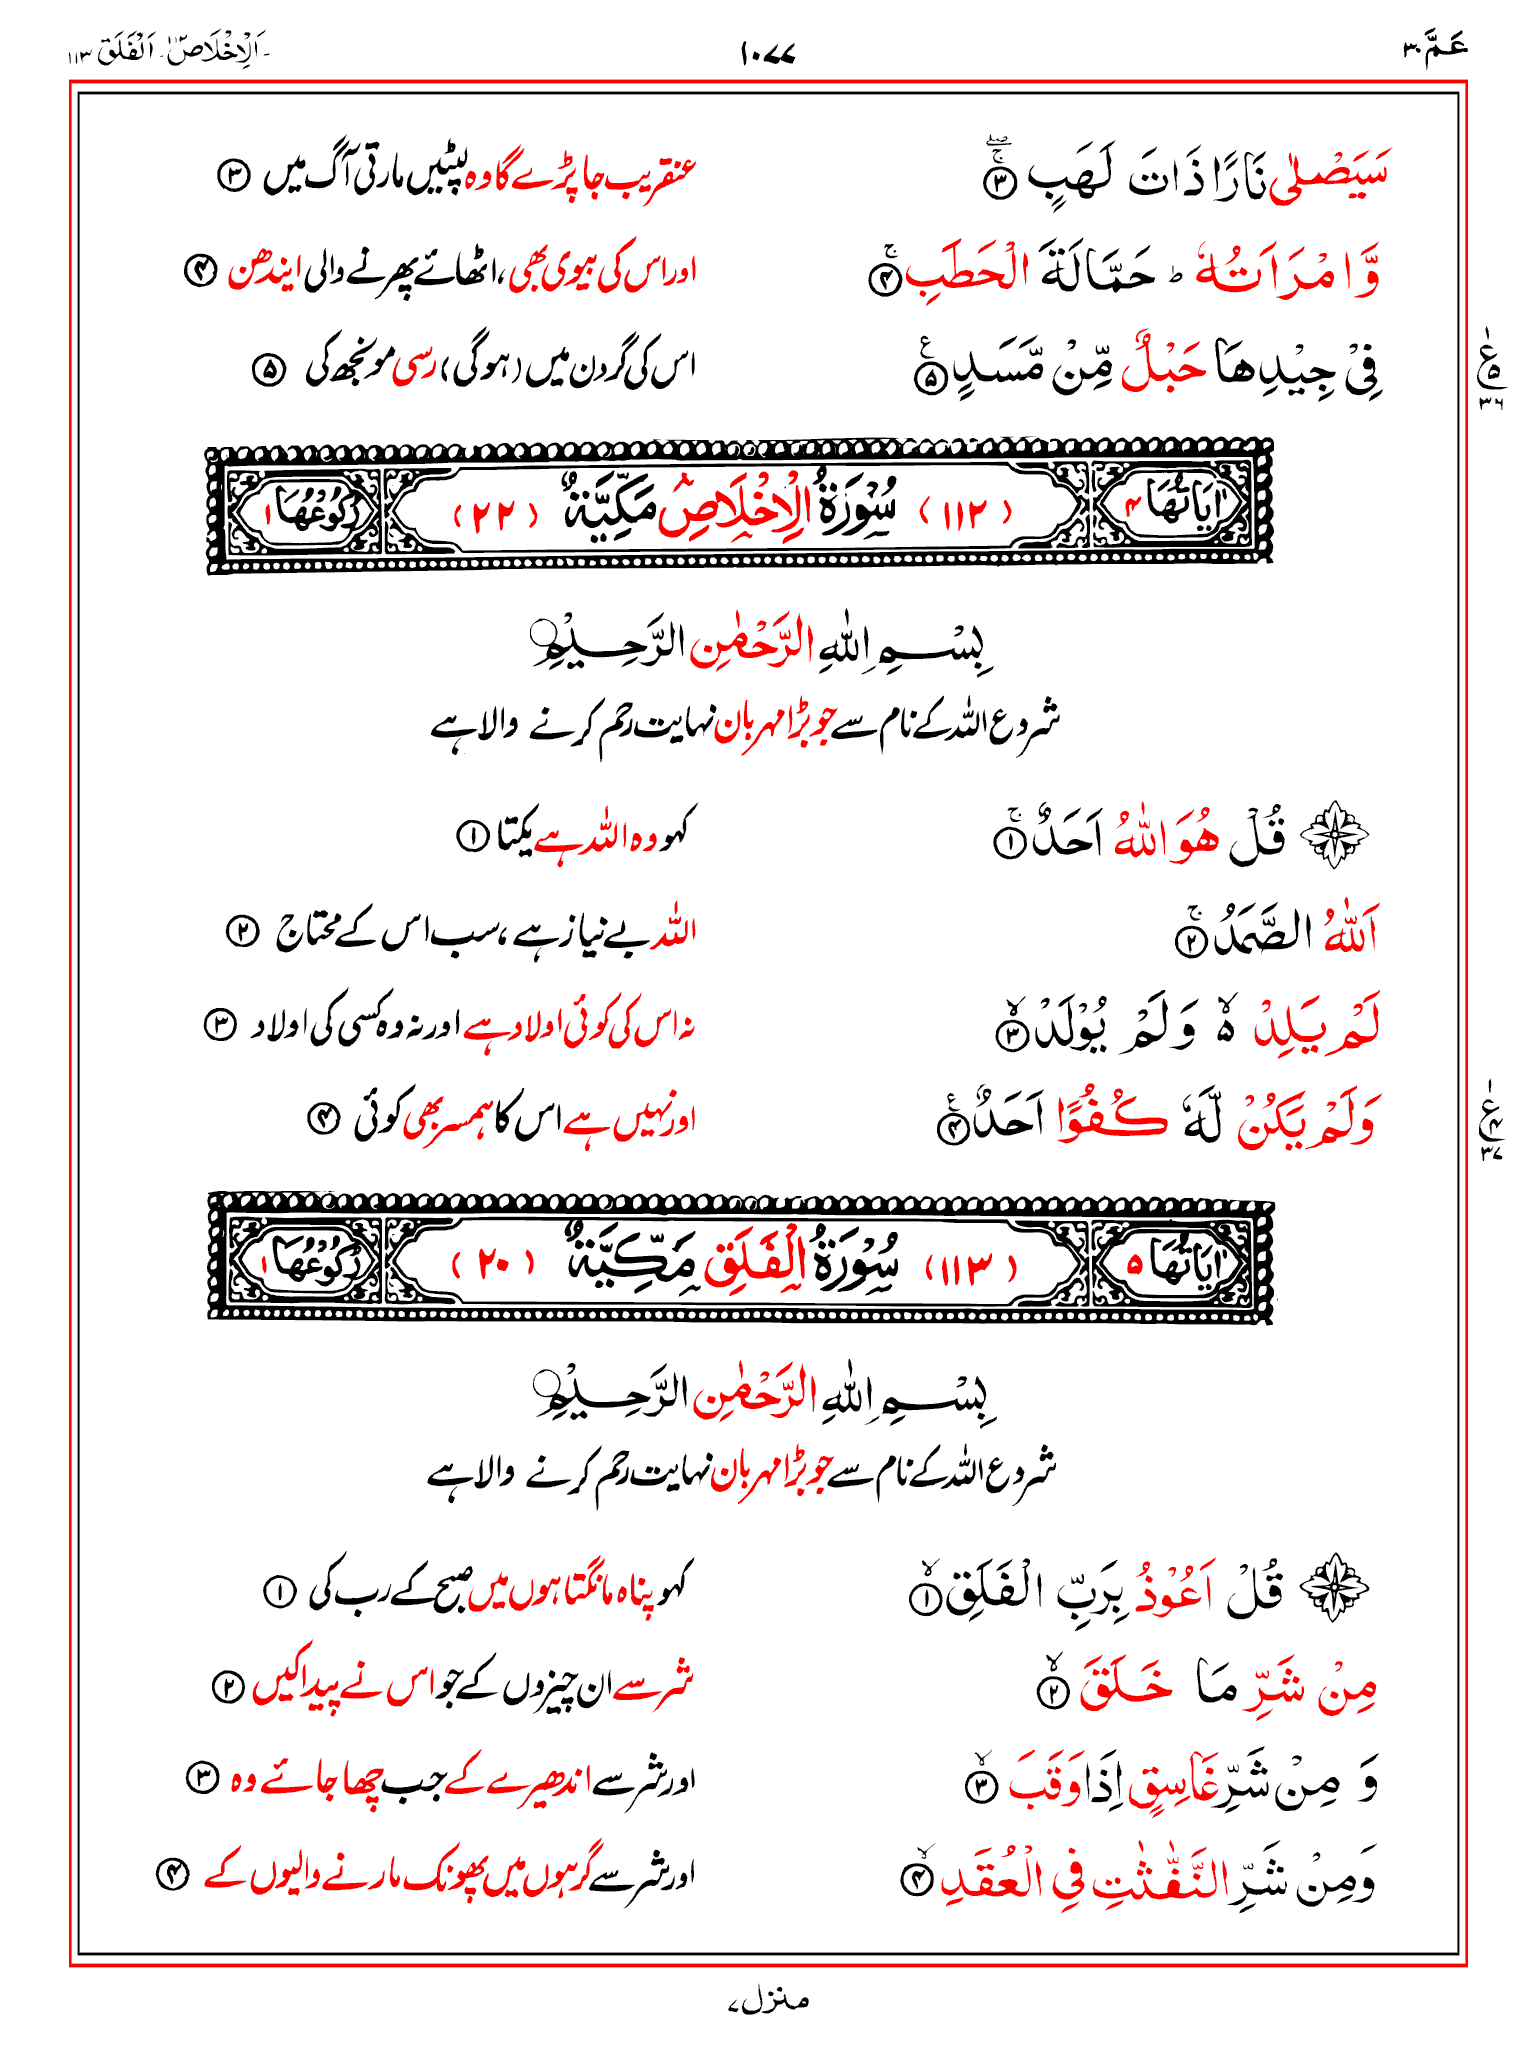 عَمَّ ۳۰
۱۰۷۷
اَلْاِخْلَاص ۱۱۲۔ اَلْفَلَق ۱۱۳
سَيَصْلٰى نَارًا ذَاتَ لَهَبٍ ۳
عنقریب جا پڑے گا وہ لپٹیں مارتی آگ میں ۳
وَّامْرَاَتُهٗ ؕ حَمَّالَةَ الْحَطَبِ ۴
اور اس کی بیوی بھی، اٹھائے پھرنے والی ایندھن ۴
فِيْ جِيْدِهَا حَبْلٌ مِّنْ مَّسَدٍ ۵
اس کی گردن میں (ہوگی) رسی مونجھ کی ۵
ع ۵ ۳۶
اٰيَاتُهَا ۴ (۱۱۲) سُوْرَةُ الْاِخْلَاصِ مَكِّيَّةٌ (۲۲) رُكُوْعُهَا ۱
بِسْمِ اللهِ الرَّحْمٰنِ الرَّحِيْمِ
شروع اللہ کے نام سے جو بڑا مہربان نہایت رحم کرنے والا ہے
قُلْ هُوَ اللّٰهُ اَحَدٌ ۱
کہو وہ اللہ ہے یکتا ۱
اَللّٰهُ الصَّمَدُ ۲
اللہ بے نیاز ہے، سب اس کے محتاج ۲
لَمْ يَلِدْ ۵ۙ وَلَمْ يُوْلَدْ ۳
نہ اس کی کوئی اولاد ہے اور نہ وہ کسی کی اولاد ۳
وَلَمْ يَكُنْ لَّهٗ كُفُوًا اَحَدٌ ۴
اور نہیں ہے اس کا ہمسر بھی کوئی ۴
ع ۴ ۳۷
اٰيَاتُهَا ۵ (۱۱۳) سُوْرَةُ الْفَلَقِ مَكِّيَّةٌ (۲۰) رُكُوْعُهَا ۱
بِسْمِ اللهِ الرَّحْمٰنِ الرَّحِيْمِ
شروع اللہ کے نام سے جو بڑا مہربان نہایت رحم کرنے والا ہے
قُلْ اَعُوْذُ بِرَبِّ الْفَلَقِ ۱
کہو پناہ مانگتا ہوں میں صبح کے رب کی ۱
مِنْ شَرِّ مَا خَلَقَ ۲
شر سے ان چیزوں کے جو اس نے پیدا کیں ۲
وَ مِنْ شَرِّ غَاسِقٍ اِذَا وَقَبَ ۳
اور شر سے اندھیرے کے جب چھا جائے وہ ۳
وَمِنْ شَرِّ النَّفّٰثٰتِ فِي الْعُقَدِ ۴
اور شر سے گرہوں میں پھونک مارنے والیوں کے ۴
منزل ۷